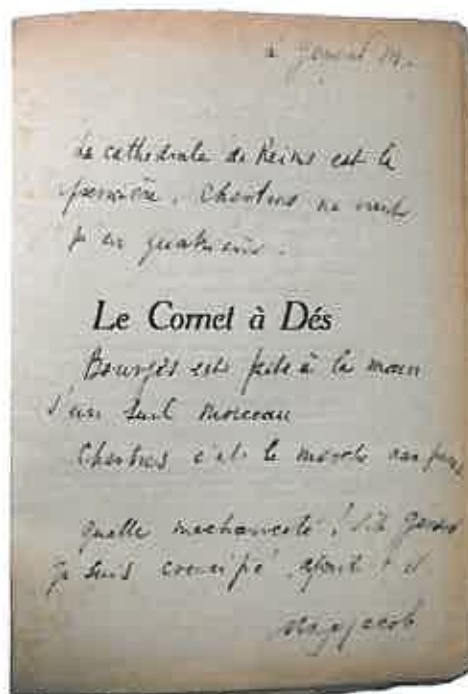 à
La cathédrale de Reims est la
première. Chartres ne vient
qu'en quatrième.
Le Cornet à Dés
Bourges est faite à la main
d'un seul morceau
Chartres c'est le
quelle méchanceté ! dit
je suis crucifié ajouta t il
Max Jacob